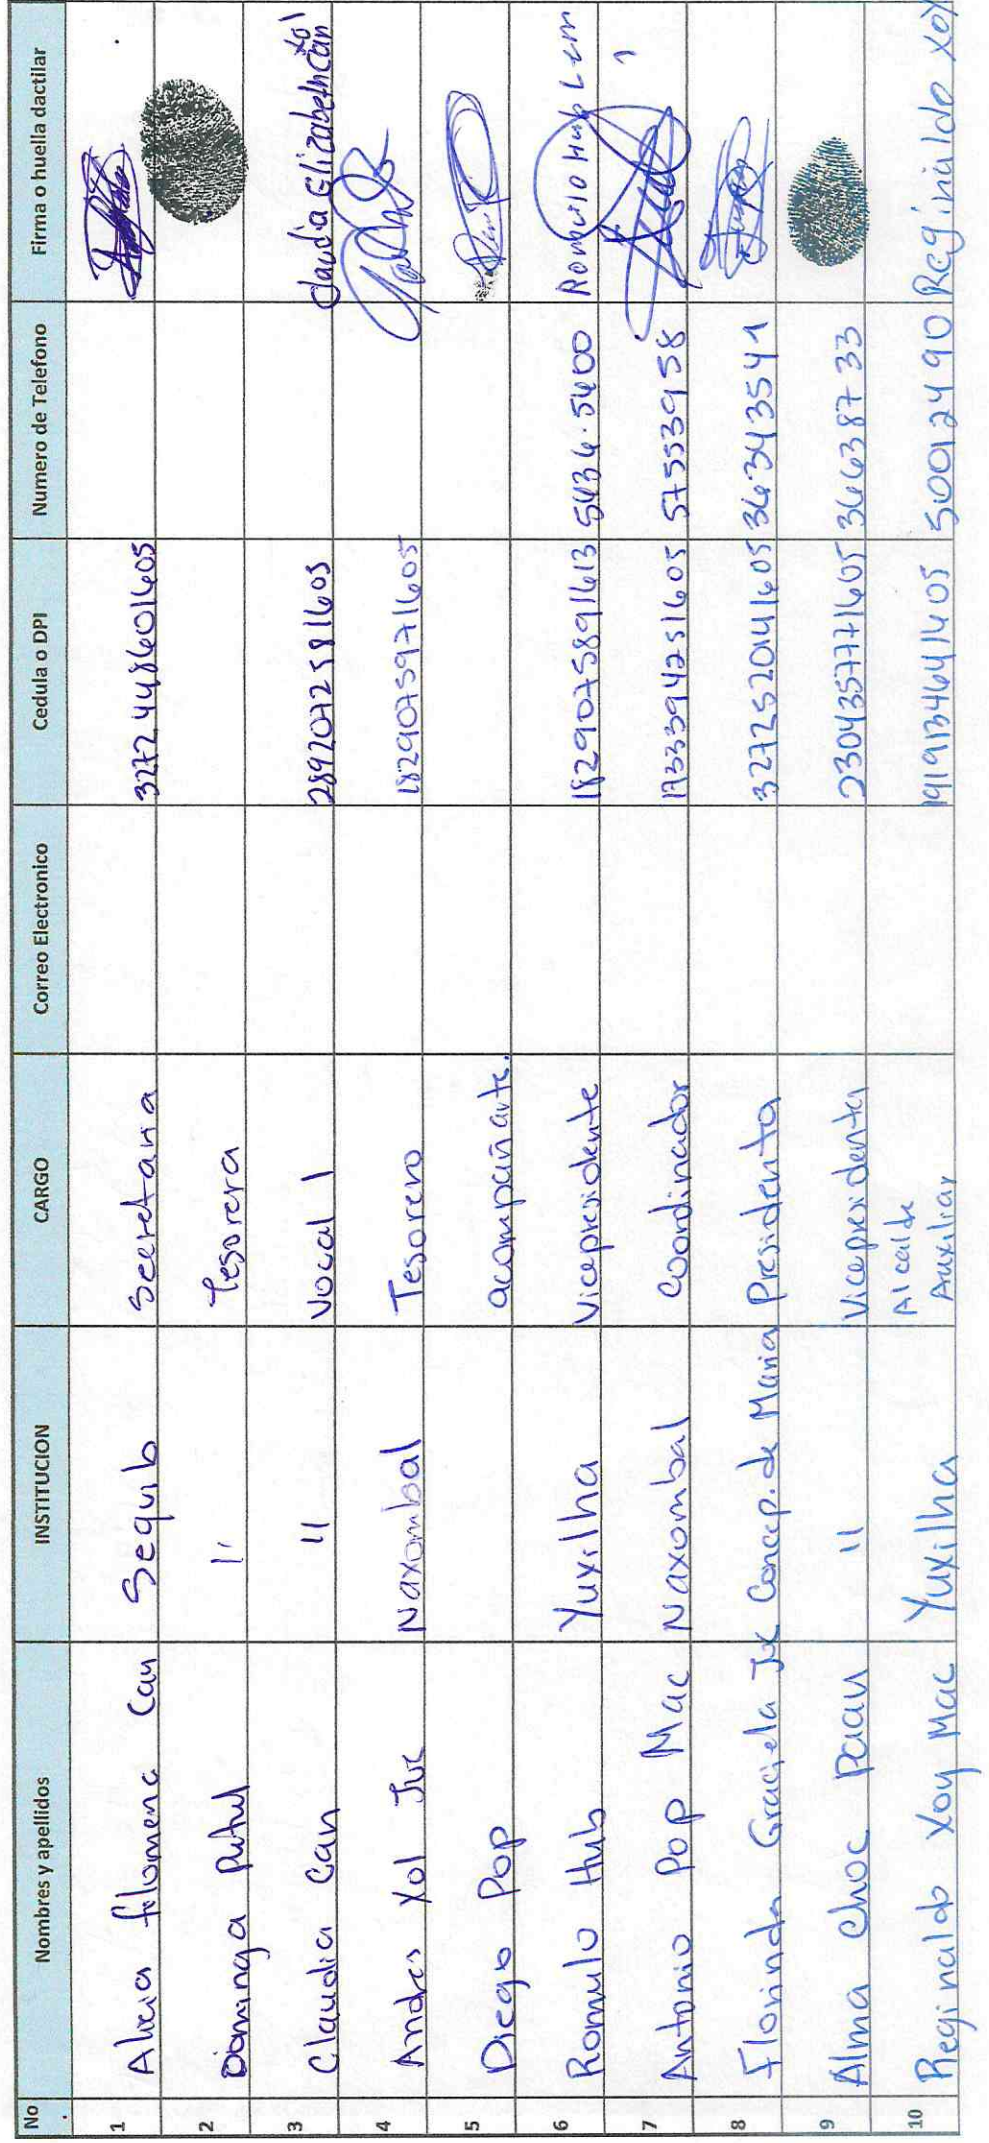 No. Nombres y apellidos INSTITUCION CARGO Correo Electronico Cedula o DPI Numero de Telefono Firma o huella dactilar
1 Alicia filomena Can Sequib Secretaria 3272448601605
2 Dominga Putul " Tesorera
3 Claudia Can " Vocal 1 2892072581605 Claudia Elizabeth Can Xol
4 Andres Xol Juc Naxombal Tesorero 1829075971605
5 Diego Pop acompañante.
6 Romulo Hub Yuxilha Vicepresidente 1829075891613 5436-5600 Romulo Hub
7 Antonio Pop Mac Naxombal Coordinador 1733394251605 57553958
8 Florinda Graciela Juc Concep. de Maria Presidenta 327252041605 36343541
9 Alma Choc Paau " Vicepresidenta 2304357771605 36638733
10 Reginaldo Xoy Mac Yuxilha Alcalde Auxiliar 1919134641405 50012490 Reginaldo Xoy